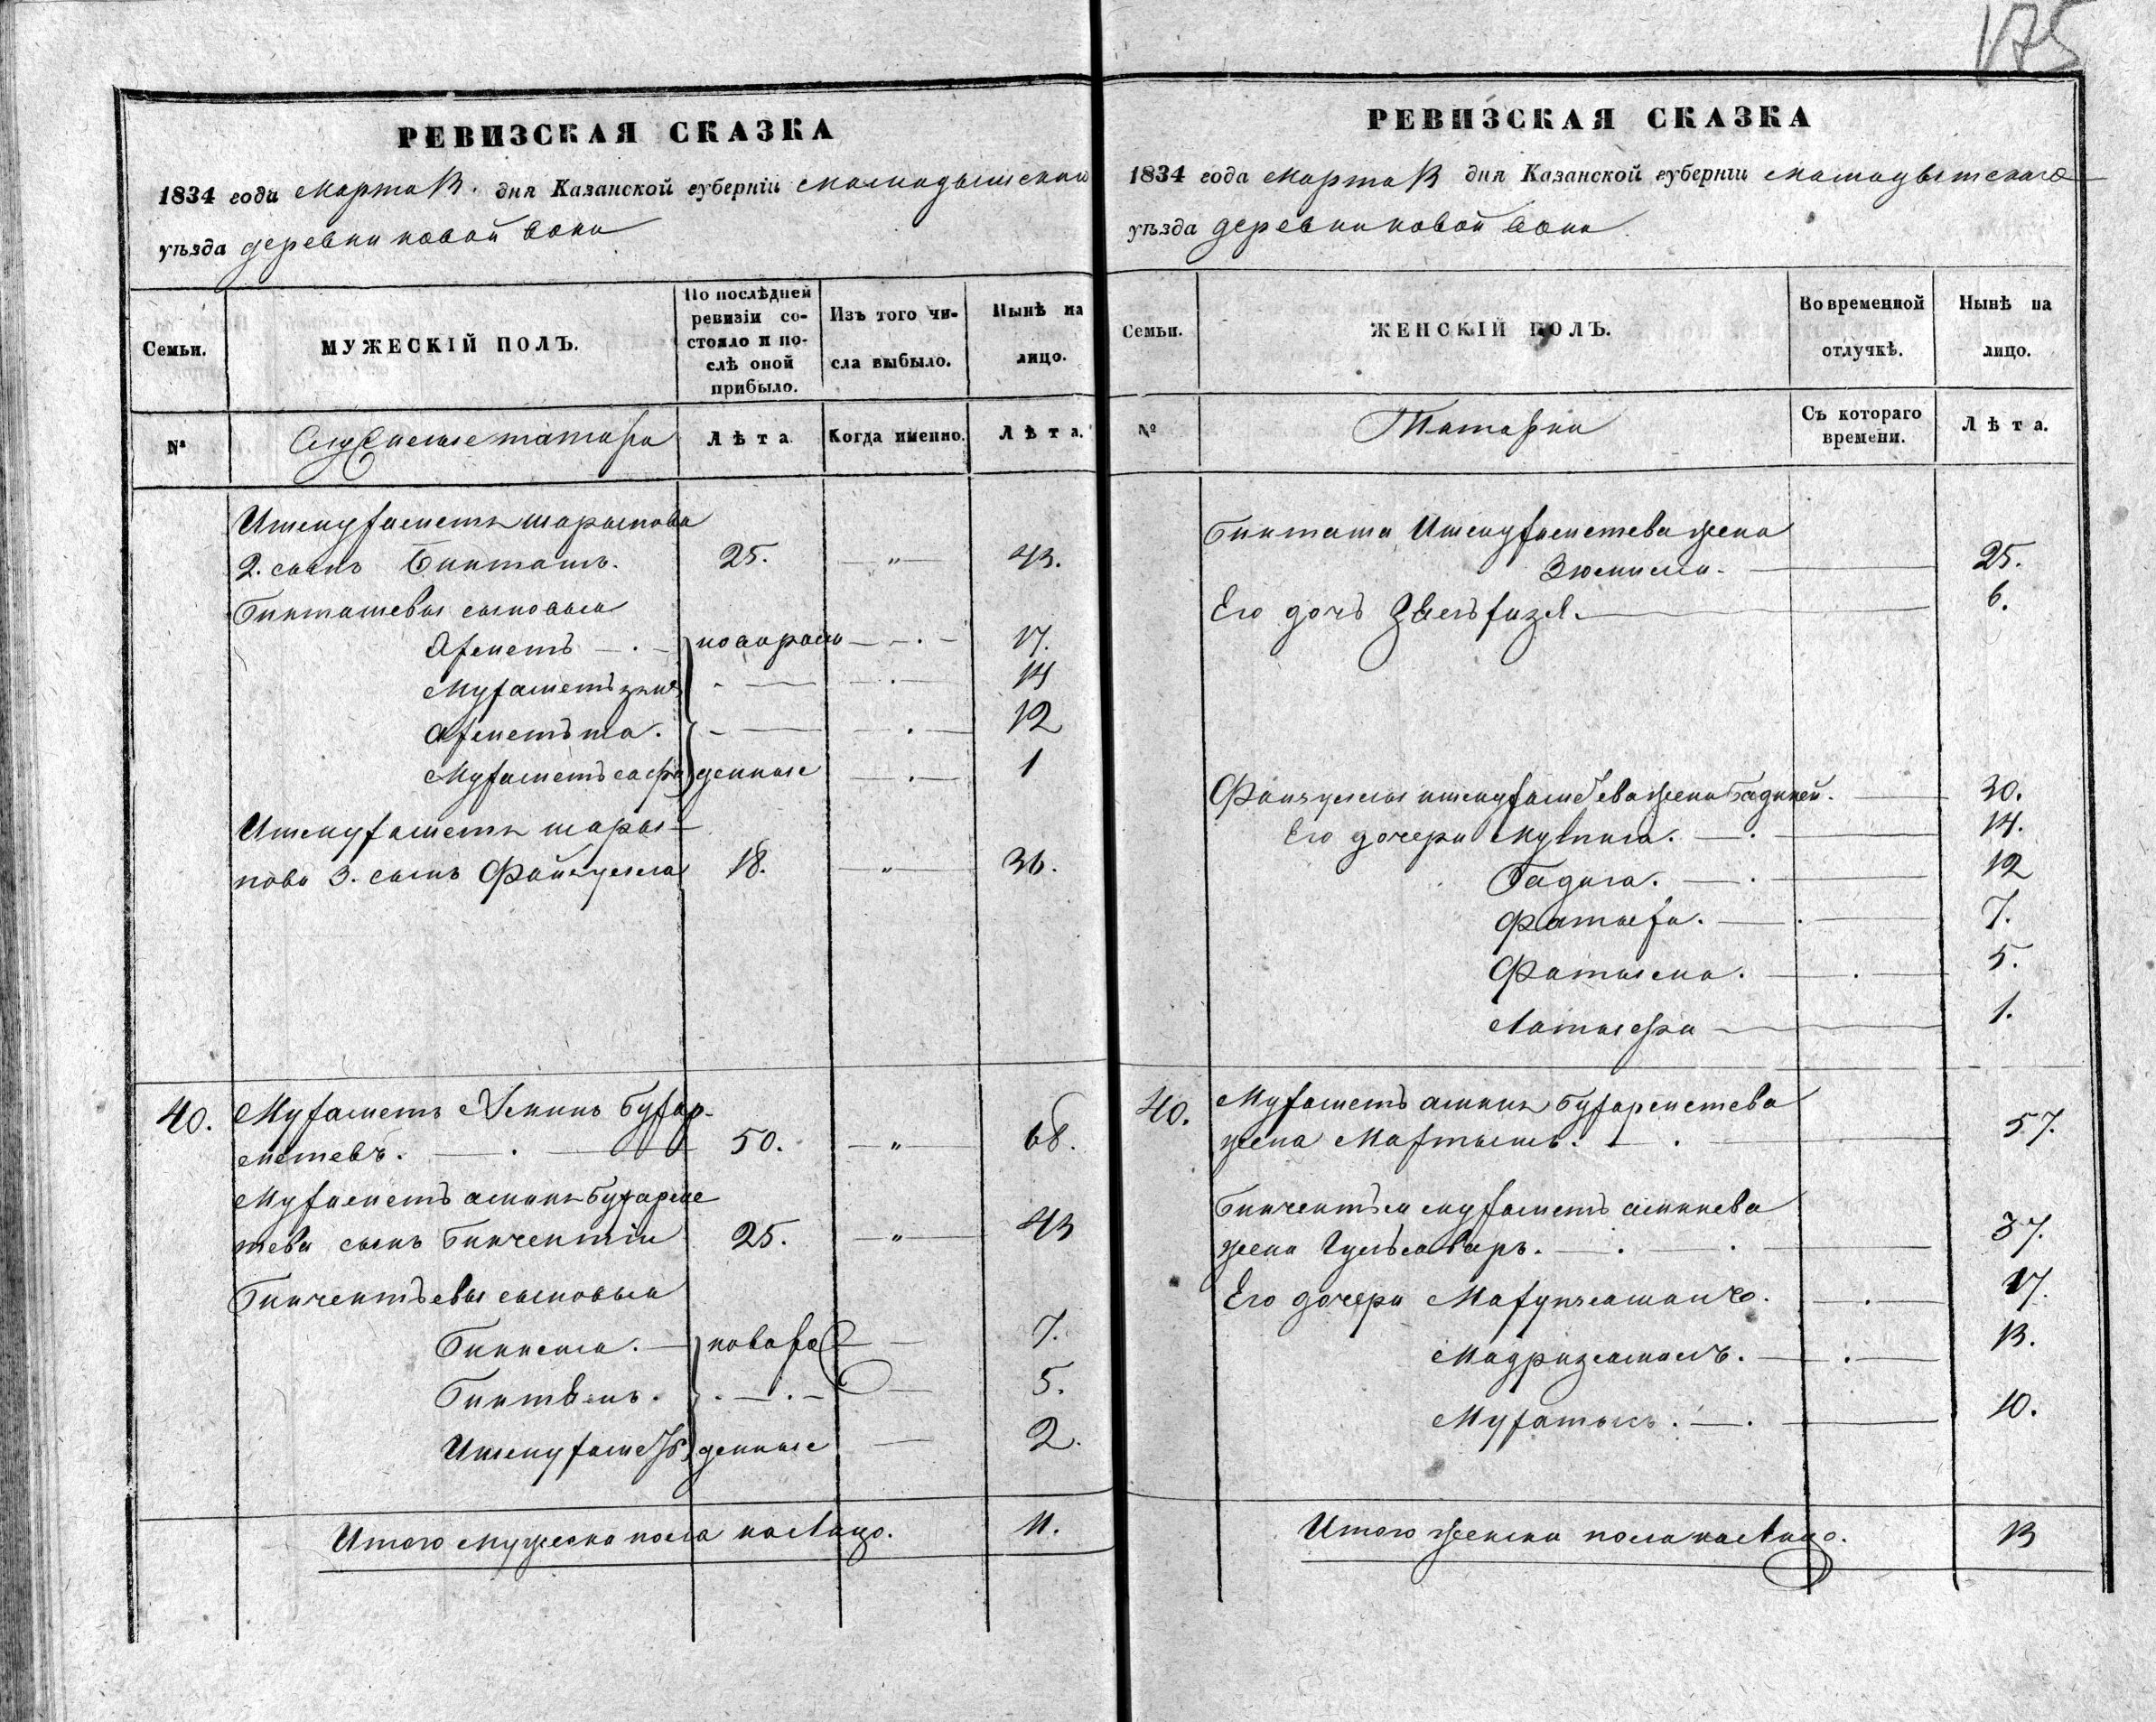 175
РЕВИЗСКАЯ СКАЗКА
1834 года марта 13. дня Казанской губерніи мамадышскаго
уѣзда деревни новой
Семьи.
МУЖЕСКІЙ ПОЛЪ.
По послѣдней ревизіи со-
стояло и по-
слѣ оной
прибыло.
Изъ того чи-
сла выбыло.
Нынѣ на
лицо.
№
татара
Лѣта
Когда именно.
Лѣта.
Ишмухаметя шарыпова
2. сынъ Бикташъ. 25. — „ — 43.
Бикташевы сыновья
Ахметъ — . — новорож — . — 17.
14
Ахметъша. — — . — 12
Мухаметъсафа денные — . — 1
Ишмухаметя шары-
пова 3. сынъ Файзулла 18. — „ — 36.
40. Мухаметъ Аминъ Бухар-
метевъ. — . — 50. — „ — 68.
Мухаметъ аминя Бухарме
тева сынъ Бикчентѣй 25. — „ — 43
Бикчентѣевы сыновья
7.
5.
Ишмухаметъ денные — 2.
Итого мужеска пола налицо. 11.
РЕВИЗСКАЯ СКАЗКА
1834 года марта 13 дня Казанской губерніи мамадышскаго
уѣзда деревни новой
Семьи.
ЖЕНСКІЙ ПОЛЪ.
Во временной
отлучкѣ.
Нынѣ на
лицо.
№
Татарки
Съ котораго
времени.
Лѣта.
Бикташа Ишмухаметева жена
25.
Его дочь 6.
Файзуллы ишмухаметева жена Бадигей. — 30.
Его дочери — . — 14.
Бадига. — . — 12
Фатыха. — . — 7.
Фатыма. — . — 5.
Латыфа — 1.
40. Мухаметъ аминя Бухарметева
жена 57.
Бикчентѣя мухаметъ аминева
жена Гульзаваръ. — . — 37.
Его дочери 17.
Мадризамалъ. — . — 13.
10.
Итого женска пола налицо. 13